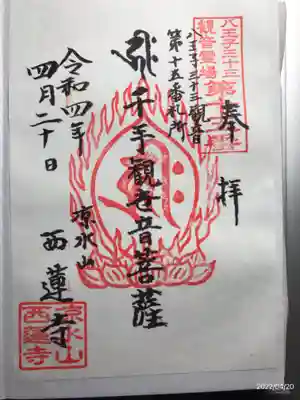 八王子三十三
観音霊場
奉拝
八王子三十三観音
第十五番札所
千手観世音菩薩
令和四年
四月二十日
涼水山
西蓮寺
涼水山
西蓮寺
2022/04/20